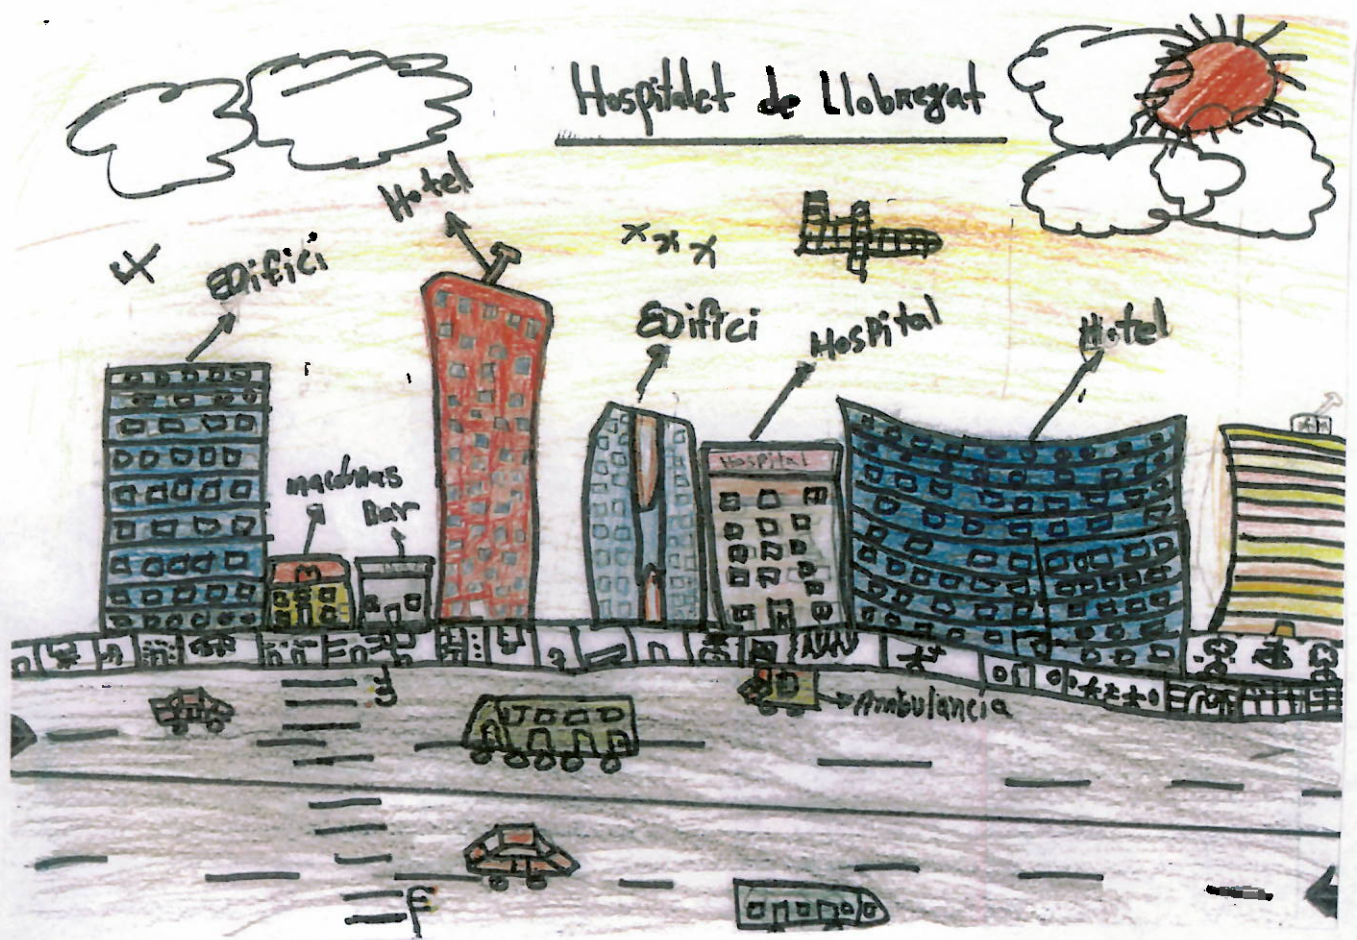 Hospitalet de Llobregat
Hotel
EDifici
EDifici
Hospital
Hotel
macdonas
Bar
Hospital
M
Ambulancia